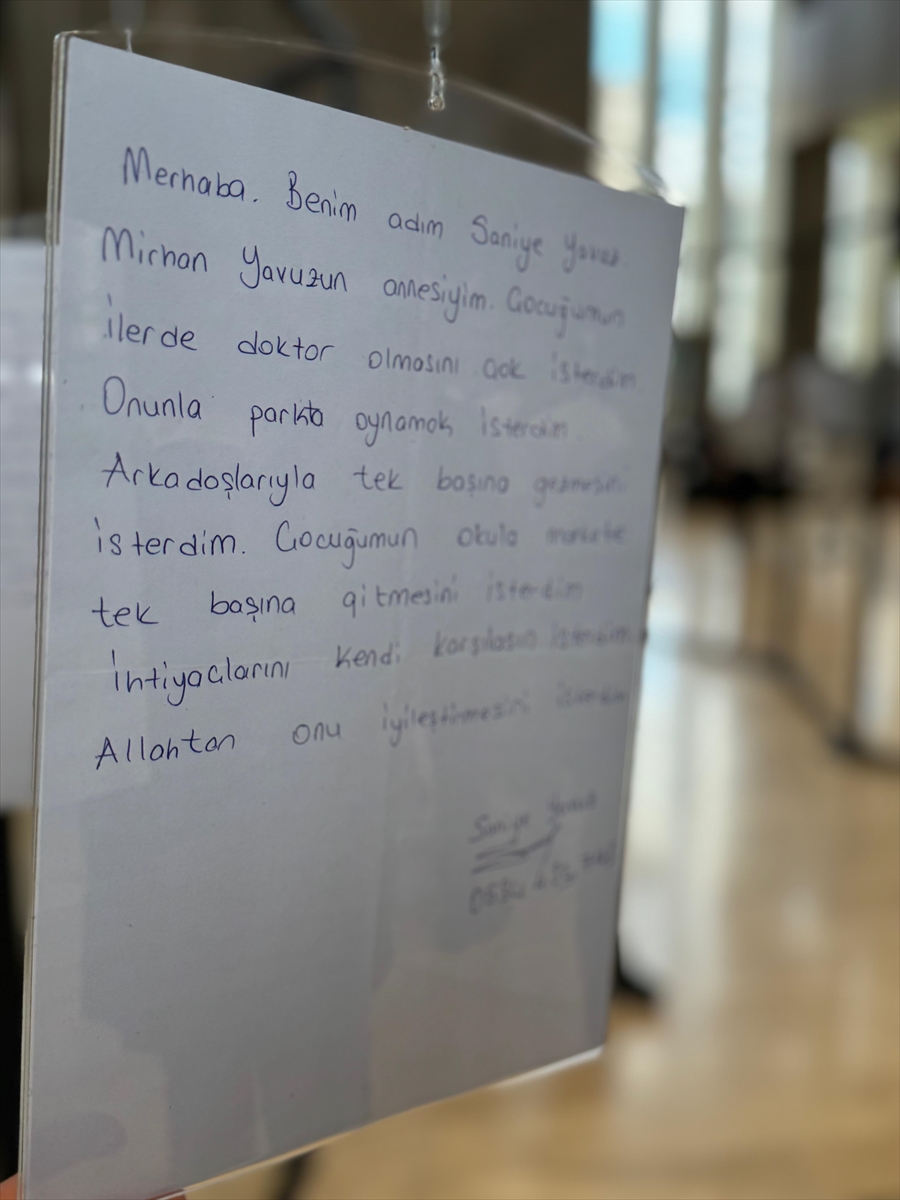 Merhaba. Benim adım Saniye Yavuz.
Mirhan Yavuzun annesiyim. Çocuğumun
ilerde doktor olmasını çok isterdim
Onunla parkta oynamak isterdim.
Arkadaşlarıyla tek başına gezmesini
isterdim. Çocuğumun okula markete
tek başına gitmesini isterdim
İhtiyaçlarını kendi karşılasın isterdim
Allahtan onu iyileştirmesini isterdim
Saniye Yavuz